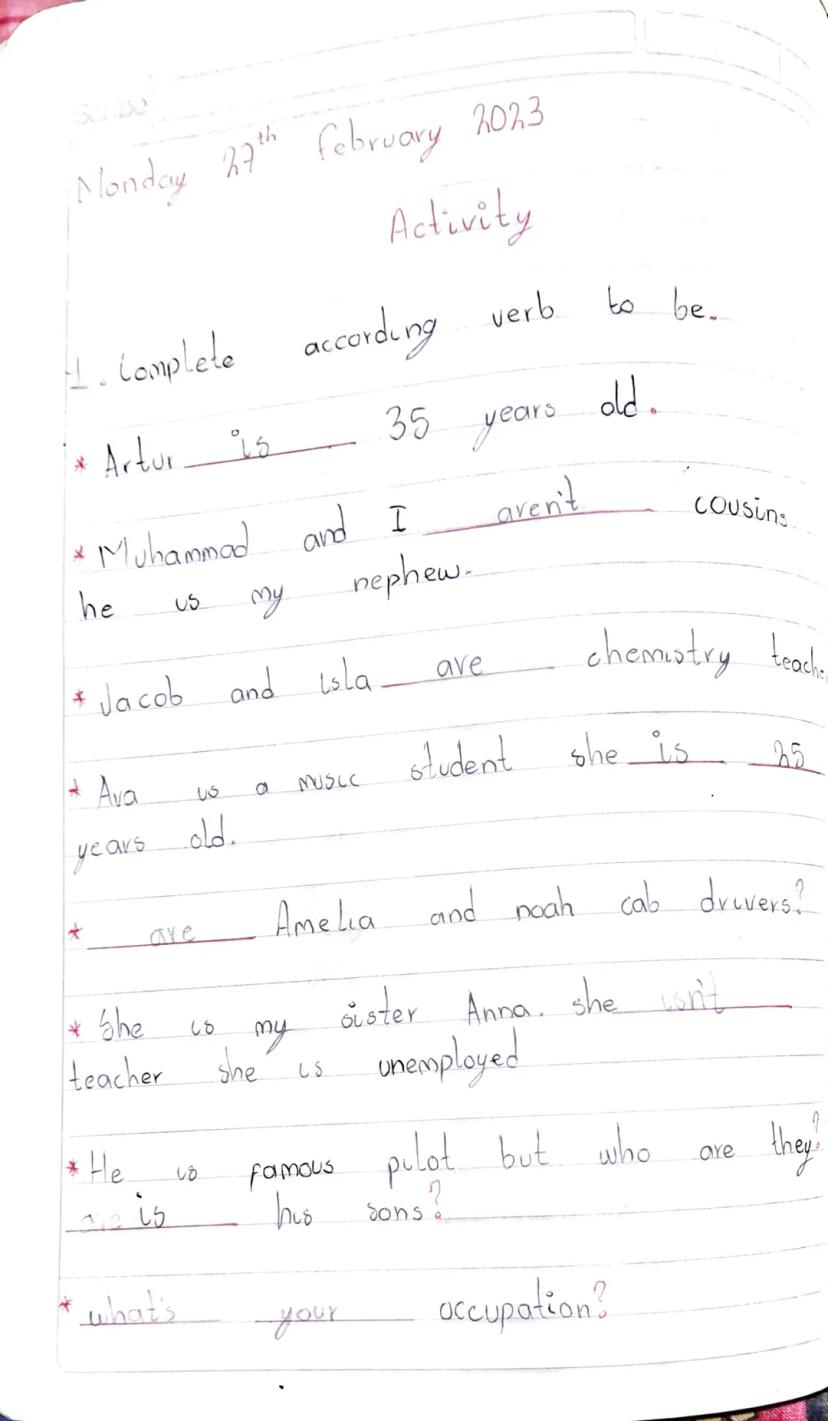 Monday 27th February 2023
Activity
1. Complete according verb to be.
* Artur is 35 years old.
* Muhammad and I aren't cousins
he is my nephew.
* Jacob and isla are chemistry teach
* Ava is a music student she is 25
years old.
* are Amelia and noah cab drivers?
* She is my sister Anna. she isn't
teacher she is unemployed
* He is famous pilot but who are they?
is his sons?
* what's your occupation?